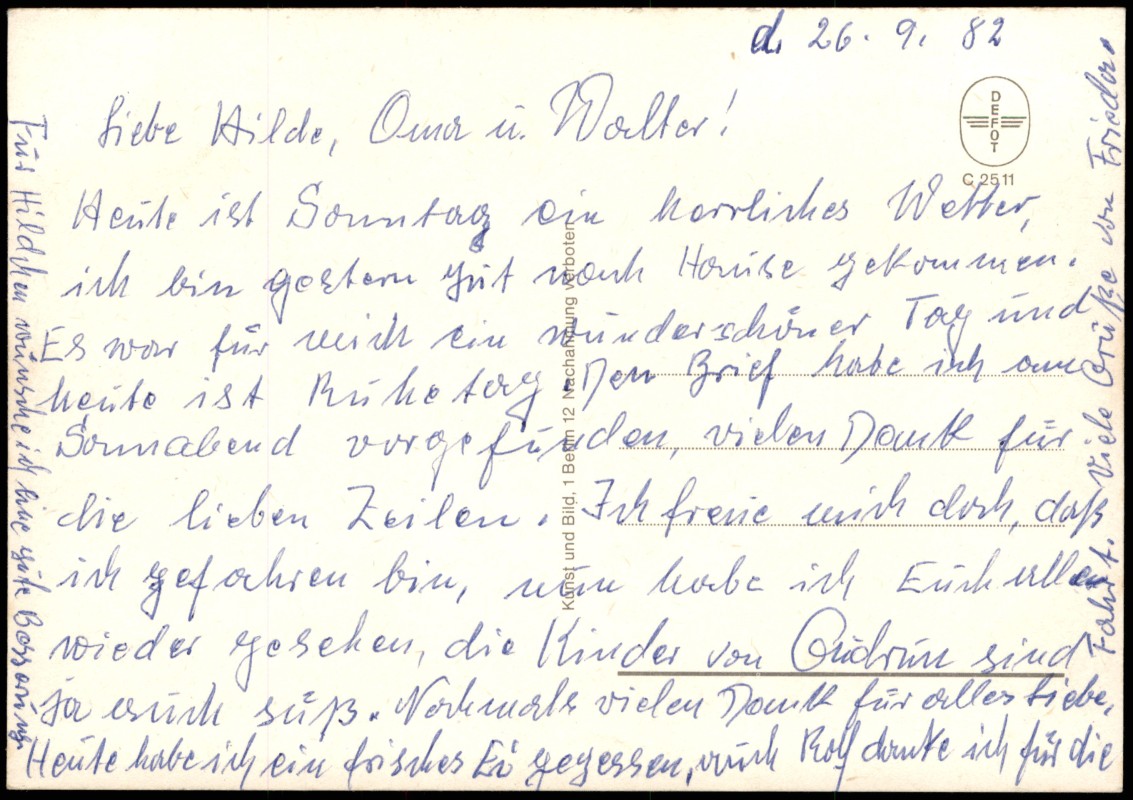 d. 26. 9. 82
Liebe Hilde, Oma u. Walter!
DEFOT
C 2511
Heute ist Sonntag ein herrliches Wetter,
ich bin gestern gut nach Hause gekommen.
Es war für mich ein wunderschöner Tag und
heute ist Ruhetag. Den Brief habe ich am
Sonnabend vorgefunden, vielen Dank für
die lieben Zeilen. Ich freue mich doch, daß
ich gefahren bin, nun habe ich Euch allen
wieder gesehen, die Kinder von Gudrun sind
ja auch süß. Nochmals vielen Dank für alles Liebe.
Heute habe ich ein frisches Ei gegessen, auch Rolf danke ich für die
Fahrt. Viele Grüße von Friedar
Für Hildchen wünsche ich eine gute Besserung
Kunst und Bild, 1 Berlin 12 Nachahmung verboten